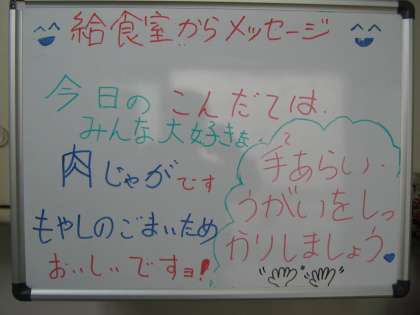 給食室からメッセージ
今日の こんだては、
みんな大好きな
肉じゃがです
もやしのごまいため
おいしいですョ!
手あらい・
うがいをしっ
かりしましょう。